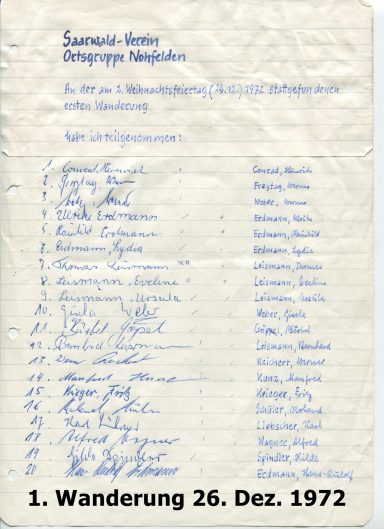 Saarwald-Verein
Ortsgruppe Nohfelden
An der am 2. Weihnachtsfeiertag (26.12.) 1972 stattgefundenen
ersten Wanderung
habe ich teilgenommen:
1. Conrad, Heinrich Conrad, Heinrich
2. Freytag, Freytag, Werner
3. Weber, Werner
4. Ulrike Erdmann Erdmann, Ulrike
5. Reinhild Erdmann Erdmann, Reinhild
6. Erdmann, Lydia Erdmann, Lydia
7. Thomas Leismann Leismann, Thomas
8. Leismann, Evelene Leismann, Eveline
9. Leismann, Ursula Leismann, Ursula
10. Gisela Weber Weber, Gisela
11. Bärbel Göppel Göppel, Bärbel
12. Bernhard Leismann Leismann, Bernhard
13. Reichert, Werner
14. Manfred Kunz, Manfred
15. Krieger, Fritz Krieger, Fritz
16. Schüler,
17. Karl Liebscher, Karl
18. Alfred Wagner Wagner, Alfred
19. Hilde Spindler Spindler, Hilde
20 Hans Rudolf Erdmann Erdmann, Hans-Rudolf
1. Wanderung 26. Dez. 1972